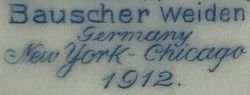 Bauscher Weiden
Germany
New York - Chicago
1912.